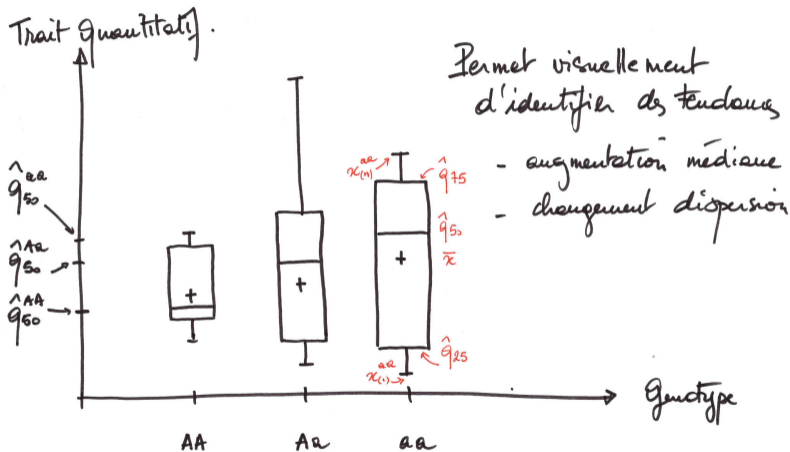 Trait Quantitatif.
Permet visuellement
d'identifier des tendances
- augmentation médiane
- changement dispersion
q̂₅₀^aa
q̂₅₀^Aa
q̂₅₀^AA
x₍ₙ₎^aa
q̂₇₅
q̂₅₀
x̄
q̂₂₅
x₍₁₎^aa
Genotype
AA Aa aa